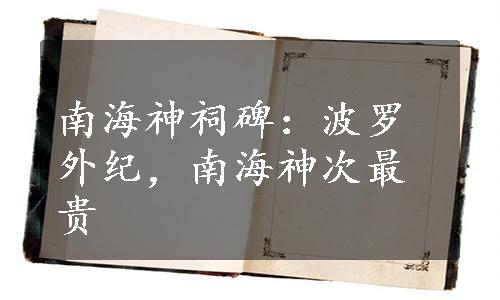 南海神祠碑：波罗
外纪，南海神次最
贵